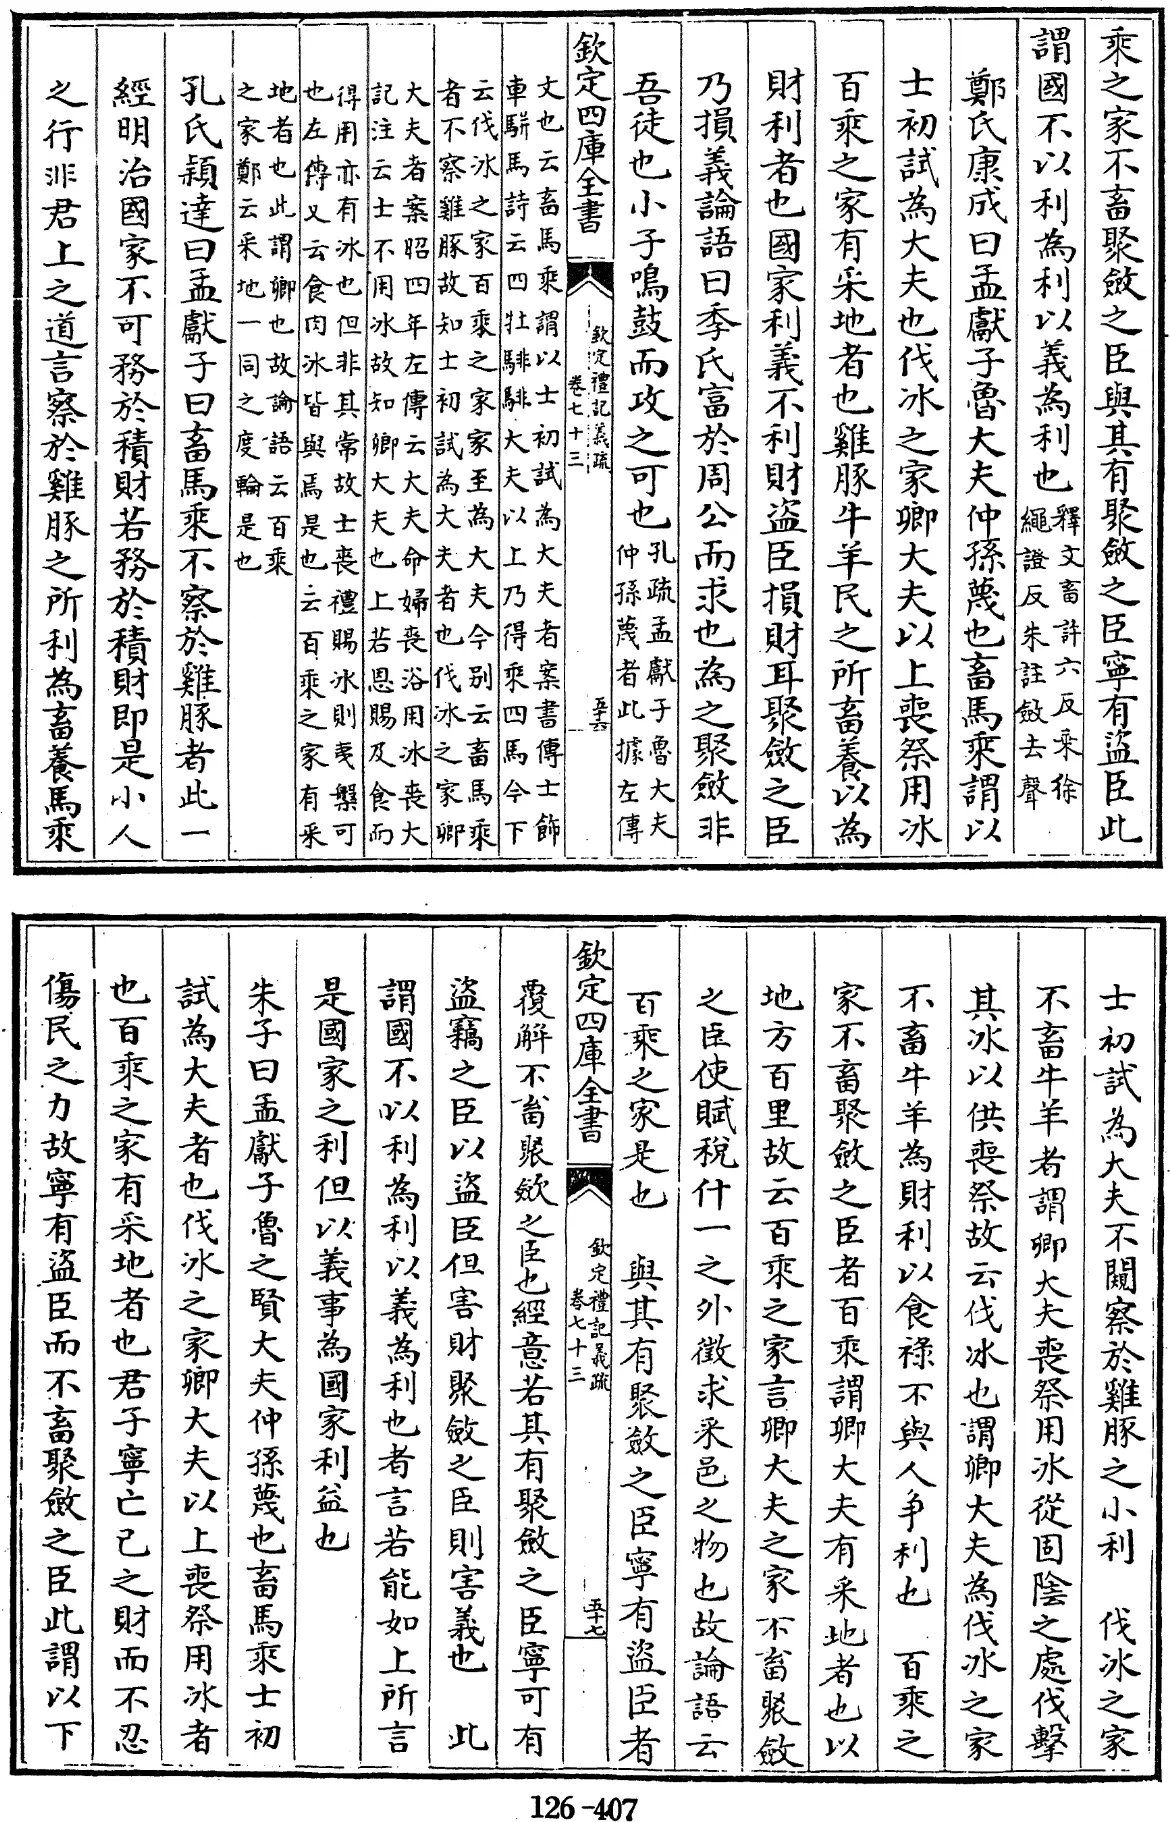 乘之家不畜聚斂之臣與其有聚斂之臣寧有盜臣此
謂國不以利為利以義為利也釋文畜許六反乘徐
繩證反朱註斂去聲
鄭氏康成曰孟獻子魯大夫仲孫蔑也畜馬乘謂以
士初試為大夫也伐冰之家卿大夫以上喪祭用冰
百乘之家有采地者也雞豚牛羊民之所畜養以為
財利者也國家利義不利財盜臣損財耳聚斂之臣
乃損義論語曰季氏富於周公而求也為之聚斂非
吾徒也小子鳴鼓而攻之可也孔疏孟獻子魯大夫
仲孫蔑者此據左傳
欽定四庫全書
欽定禮記義疏
卷七十三
五十六
文也云畜馬乘謂以士初試為大夫者案書傳士飾
車駢馬詩云四牡騑騑大夫以上乃得乘四馬今下
云伐冰之家百乘之家家至為大夫今別云畜馬乘
者不察雞豚故知士初試為大夫者也伐冰之家卿
大夫者案昭四年左傳云大夫命婦喪浴用冰喪大
記注云士不用冰故知卿大夫也上若恩賜及食而
得用亦有冰也但非其常故士喪禮賜冰則夷槃可
也左傳又云食肉冰皆與焉是也云百乘之家有采
地者也此謂卿也故論語云百乘
之家鄭云采地一同之度輪是也
孔氏穎達曰孟獻子曰畜馬乘不察於雞豚者此一
經明治國家不可務於積財若務於積財即是小人
之行非君上之道言察於雞豚之所利為畜養馬乘
士初試為大夫不闚察於雞豚之小利　伐冰之家
不畜牛羊者謂卿大夫喪祭用冰從固陰之處伐擊
其冰以供喪祭故云伐冰也謂卿大夫為伐冰之家
不畜牛羊為財利以食祿不與人爭利也　百乘之
家不畜聚斂之臣者百乘謂卿大夫有采地者也以
地方百里故云百乘之家言卿大夫之家不畜聚斂
之臣使賦稅什一之外徵求采邑之物也故論語云
百乘之家是也　與其有聚斂之臣寧有盜臣者
欽定四庫全書
欽定禮記義疏
卷七十三
五十七
覆解不畜聚斂之臣也經意若其有聚斂之臣寧可有
盜竊之臣以盜臣但害財聚斂之臣則害義也　此
謂國不以利為利以義為利也者言若能如上所言
是國家之利但以義事為國家利益也
朱子曰孟獻子魯之賢大夫仲孫蔑也畜馬乘士初
試為大夫者也伐冰之家卿大夫以上喪祭用冰者
也百乘之家有采地者也君子寧亡己之財而不忍
傷民之力故寧有盜臣而不畜聚斂之臣此謂以下
126-407